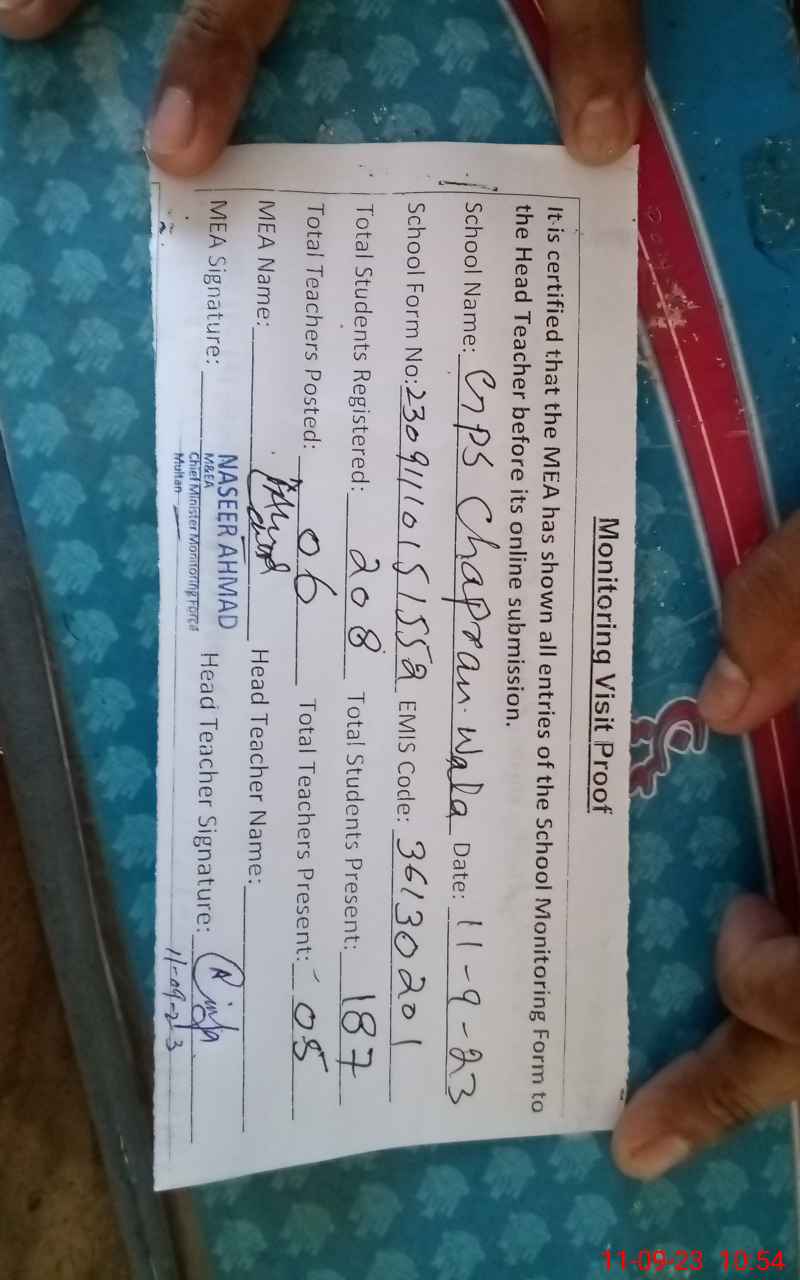 Monitoring Visit Proof
It is certified that the MEA has shown all entries of the School Monitoring Form to
the Head Teacher before its online submission.
School Name: GPS Chapran Wala Date: 11-9-23
School Form No: 23091110151552 EMIS Code: 36130201
Total Students Registered: 208 Total Students Present: 187
Total Teachers Posted: 06 Total Teachers Present: 05
MEA Name: Head Teacher Name:
NASEER AHMAD
MEA Signature: Head Teacher Signature:
M&EA
Chief Minister Monitoring Force
Multan
11-09-23
11-09-23 10:54